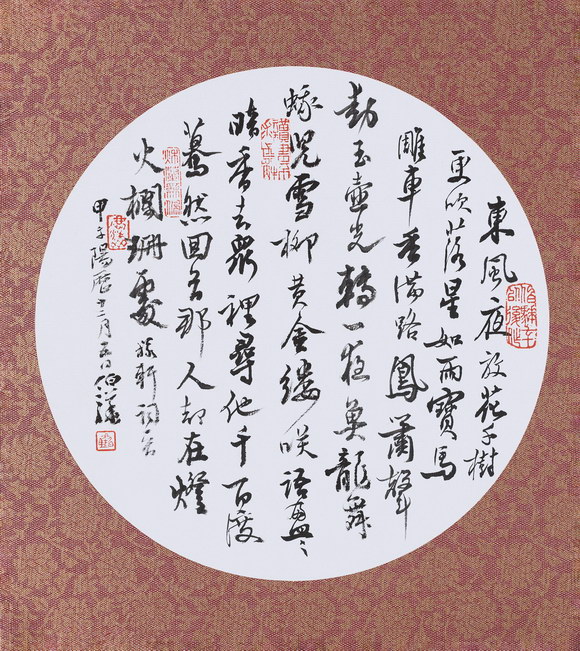 東風夜放花千樹
更吹落星如雨寶馬
雕車香滿路鳳簫聲
動玉壺光轉一夜魚龍舞
蛾兒雪柳黃金縷咲語盈〻
暗香去眾裡尋他千百度
驀然回首那人却在燈
火欄珊處 稼軒詞
甲子陽曆十二月